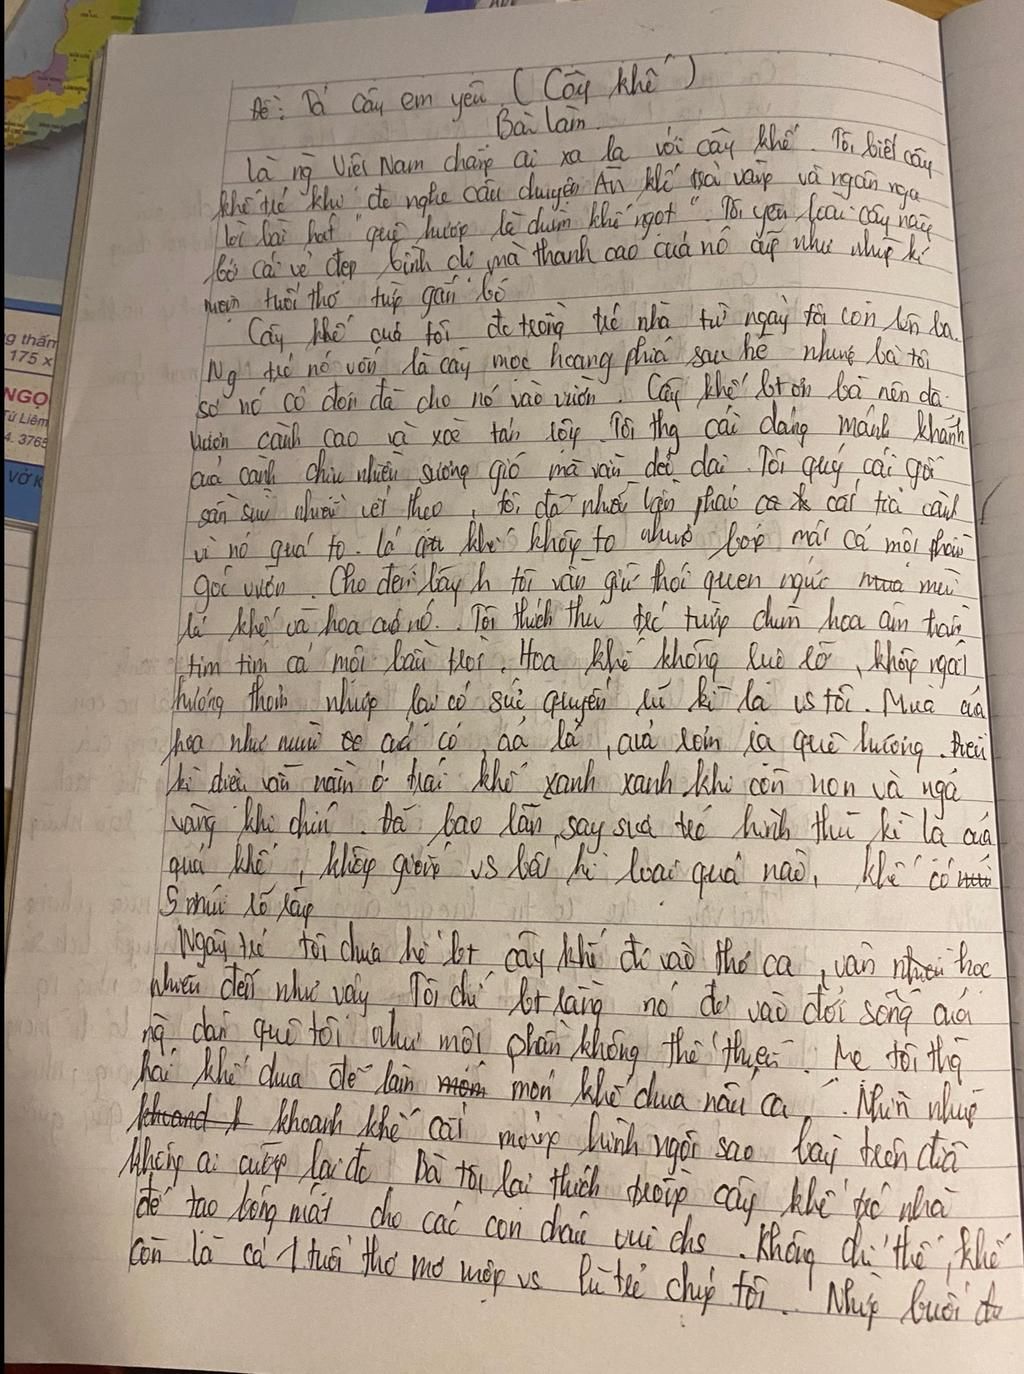 Đề: Tả cây em yêu (Cây khế)
Bài làm.
Là ng Việt Nam chẳng ai xa lạ với cây khế. Tôi biết cây
khế từ khi đc nghe câu chuyện Ăn khế trả vàng và ngân nga
lời bài hát "quê hương là chùm khế ngọt". Tôi yêu loài cây này
bởi cái vẻ đẹp bình dị mà thanh cao của nó cũng như những kỉ
niệm tuổi thơ từng gắn bó
Cây khế của tôi đc trồng trc nhà từ ngày tôi còn lên ba.
Ng trc nó vốn là cây mọc hoang phía sau hè nhưng bà tôi
sợ nó cô đơn đã cho nó vào vườn. Cây khế bt ơn bà nên đã
vươn cành cao và xoè tán rộng. Tôi thg cái dáng mảnh khảnh
của cành chịu nhiều sương gió mà vẫn dẻo dai. Tôi quý cái gốc
sần sùi nhiều vết theo, tôi đã nhiều lần phải cắt tỉa cành
vì nó quá to. lá khế không to nhưng bóp mát cả một phần
góc vườn. Cho đến bây h tôi vẫn giữ thói quen ngửi mùi
lá khế và hoa của nó. Tôi thích thú trc từng chùm hoa
tim tím cả một bầu trời. Hoa khế không loè loẹt, không ngát
hương thơm nhưng lại có sức quyến rũ kì lạ vs tôi. Mùi của
hoa như mùi của cỏ, của lá, của rơm rạ quê hương. Điều
kì diệu vẫn nằm ở trái khế xanh xanh khi còn non và ngả
vàng khi chín. Đã bao lần say sưa trc hình thù kì lạ của
quả khế, không giống vs bất kì loại quả nào, khế có
5 múi
Ngày trc tôi chưa hề bt cây khế đi vào thơ ca, văn học
nhiều đến như vậy. Tôi chỉ bt rằng nó đi vào đời sống của
ng dân quê tôi như một phần không thể thiếu. Mẹ tôi thg
hái khế chua để làm món khế chua nấu cá. Nhìn những
khoanh khế cắt mỏng hình ngôi sao bày trên đĩa
không ai cưỡng lại đc. Bà tôi lại thích trồng cây khế trc nhà
để tạo bóng mát cho các con cháu vui chs. Không chỉ thế, khế
còn là cả 1 tuổi thơ mơ mộng vs lũ trẻ chúng tôi. Những buổi
g thấm
175 x
NGỌ
Từ Liêm
4. 3765
VỞ K